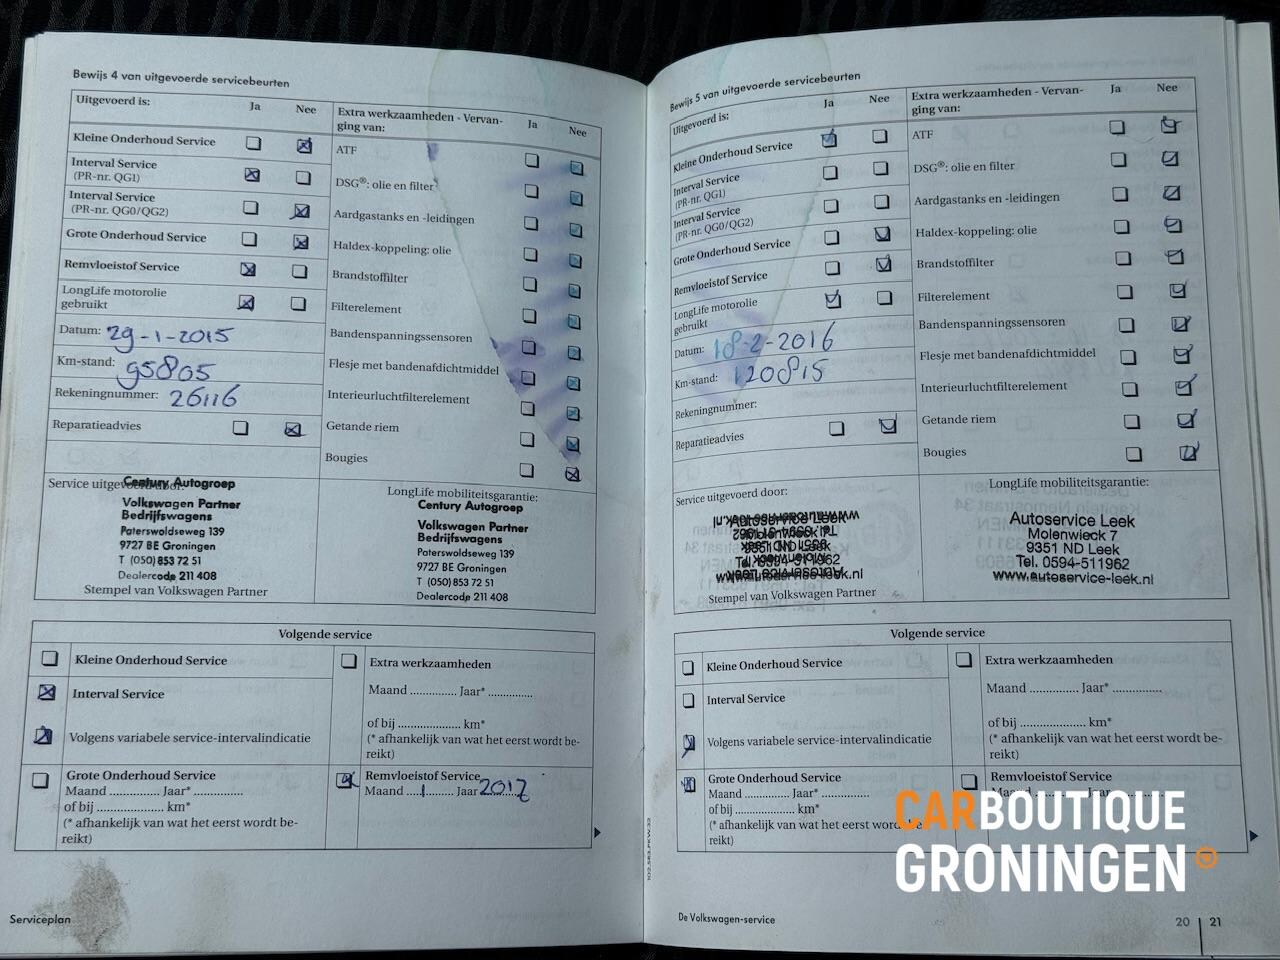 Bewijs 4 van uitgevoerde servicebeurten
Uitgevoerd is: Ja Nee
Kleine Onderhoud Service
Interval Service
(PR-nr. QG1)
Interval Service
(PR-nr. QG0/QG2)
Grote Onderhoud Service
Remvloeistof Service
LongLife motorolie
gebruikt
Datum: 29-1-2015
Km-stand: 95805
Rekeningnummer: 26116
Reparatieadvies
Extra werkzaamheden - Vervan-
ging van: Ja Nee
ATF
DSG®: olie en filter
Aardgastanks en -leidingen
Haldex-koppeling: olie
Brandstoffilter
Filterelement
Bandenspanningssensoren
Flesje met bandenafdichtmiddel
Interieurluchtfilterelement
Getande riem
Bougies
Service uitgevoerd door:
Century Autogroep
Volkswagen Partner
Bedrijfswagens
Paterswoldseweg 139
9727 BE Groningen
T (050) 853 72 51
Dealercode 211 408
Stempel van Volkswagen Partner
LongLife mobiliteitsgarantie:
Century Autogroep
Volkswagen Partner
Bedrijfswagens
Paterswoldseweg 139
9727 BE Groningen
T (050) 853 72 51
Dealercode 211 408
Volgende service
Kleine Onderhoud Service
Interval Service
Volgens variable service-intervalindicatie
Grote Onderhoud Service
Maand .............. Jaar* ..............
of bij ................... km*
(* afhankelijk van wat het eerst wordt be-
reikt)
Extra werkzaamheden
Maand .............. Jaar* ..............
of bij ................... km*
(* afhankelijk van wat het eerst wordt be-
reikt)
Remvloeistof Service
Maand ....1........ Jaar 2017
Serviceplan
Bewijs 5 van uitgevoerde servicebeurten
Uitgevoerd is: Ja Nee
Kleine Onderhoud Service
Interval Service
(PR-nr. QG1)
Interval Service
(PR-nr. QG0/QG2)
Grote Onderhoud Service
Remvloeistof Service
LongLife motorolie
gebruikt
Datum: 18-2-2016
Km-stand: 120815
Rekeningnummer:
Reparatieadvies
Extra werkzaamheden - Vervan-
ging van: Ja Nee
ATF
DSG®: olie en filter
Aardgastanks en -leidingen
Haldex-koppeling: olie
Brandstoffilter
Filterelement
Bandenspanningssensoren
Flesje met bandenafdichtmiddel
Interieurluchtfilterelement
Getande riem
Bougies
Service uitgevoerd door:
Autoservice Leek
9351 ND Leek
Tel. 0594-511962
www.autoservice-leek.nl
Stempel van Volkswagen Partner
LongLife mobiliteitsgarantie:
Autoservice Leek
Molenwieck 7
9351 ND Leek
Tel. 0594-511962
www.autoservice-leek.nl
Volgende service
Kleine Onderhoud Service
Interval Service
Volgens variable service-intervalindicatie
Grote Onderhoud Service
Maand .............. Jaar* ..............
of bij ................... km*
(* afhankelijk van wat het eerst wordt be-
reikt)
Extra werkzaamheden
Maand .............. Jaar* ..............
of bij ................... km*
(* afhankelijk van wat het eerst wordt be-
reikt)
Remvloeistof Service
CARBOUTIQUE
GRONINGEN
De Volkswagen-service
20 21